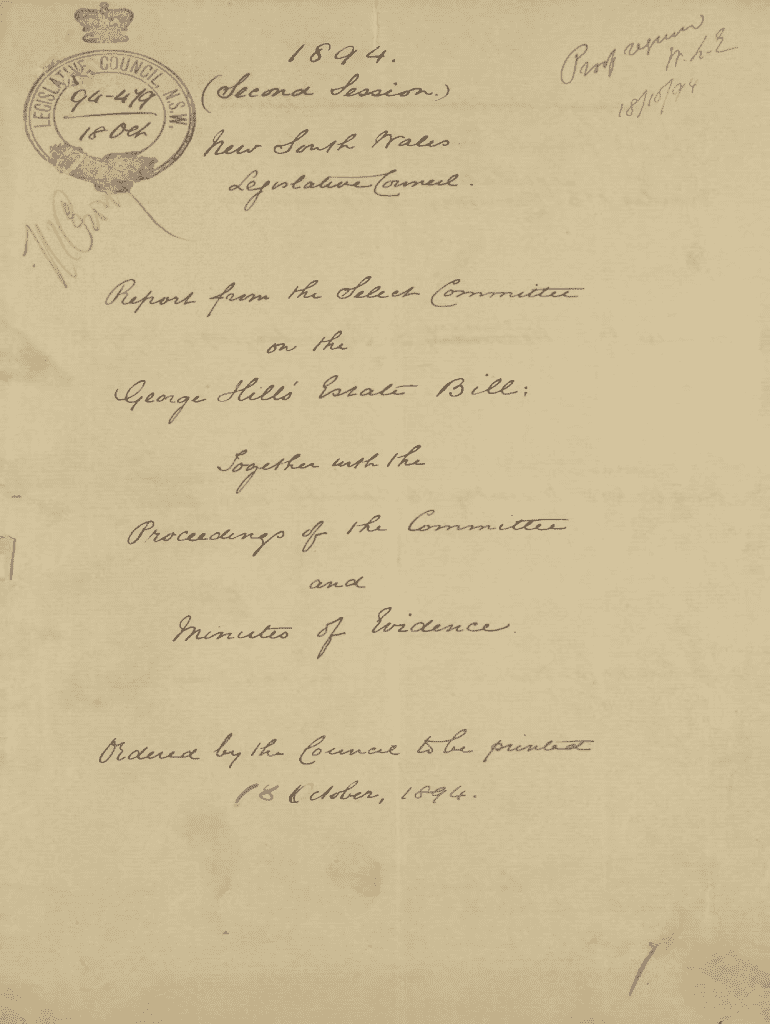 LEGISLATIVE COUNCIL, N.S.W.
94-479
18 Oct
1894.
(Second Session.)
New South Wales
Legislative Council.
Proof
W. L. E
18/10/94
Report from the Select Committee
on the
George Hill's Estate Bill;
Together with the
Proceedings of the Committee
and
Minutes of Evidence.
Ordered by the Council to be printed
18 October, 1894.